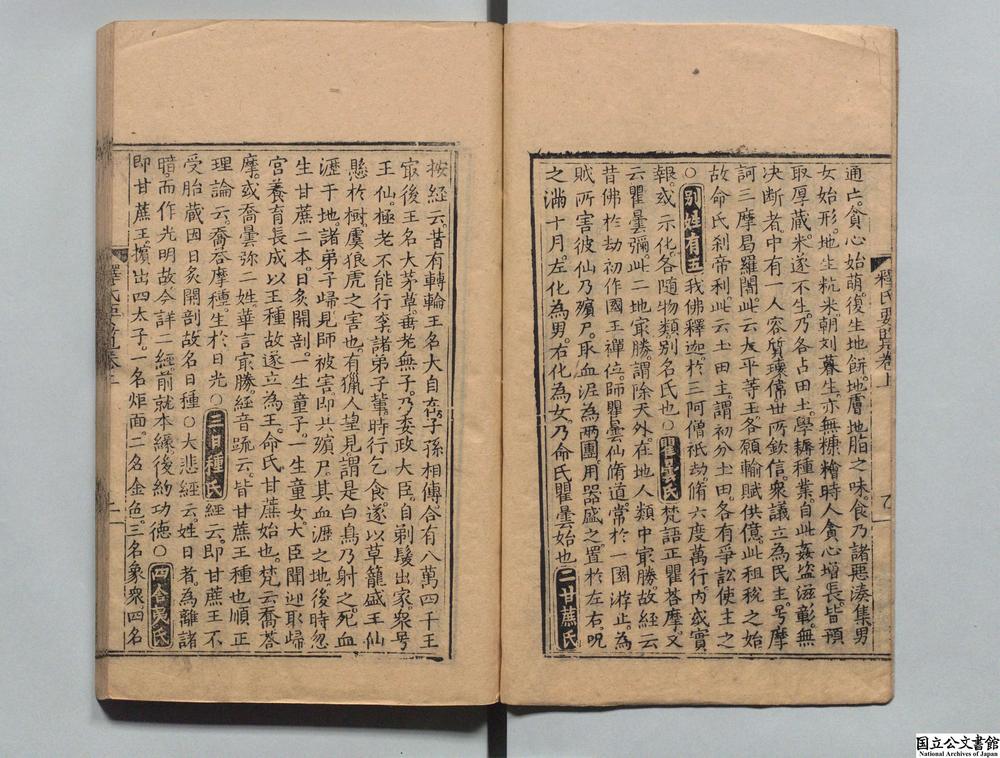 通亡。貪心始萌。復生地餅。地膚地脂之味。食乃諸惡湊集男
女始形。地生粇米。朝刈暮生。亦無糠糩時人貪心增長。皆預
取厚藏米。遂不生。乃各占田土。學耕種業。自此姦盜滋彰。無
决断者中有一人容質瓌偉世所欽信。衆議立為民主。号摩
訶三摩曷羅闍。此云大平等王各願輸賦供億。此租稅之始
故命氏刹帝利。此云土田主。謂初分土田。各有爭訟使主之
○別姓有五我佛釋迦。於三阿僧祇劫。脩六度萬行。内或實
報。或示化。各隨物類别名氏也○瞿曇氏梵語正瞿荅摩。又
云瞿曇彌。此二地冣勝。謂除天外。在地人類中冣勝故經云
昔佛於劫初作國王禪位。師瞿曇仙脩道。常於一園游止。為
賊所害彼仙乃殯尸。取血泥為兩團用器盛之。置於左右。呪
之滿十月。左化為男。右化為女。乃命氏瞿曇始也二甘蔗氏
釋氏要覽卷上
按經云。昔有轉輪王名大自在。子孫相傳合有八萬四千王
冣後王名大茅草。垂老無子。乃委政大臣。自剃髮出家。衆号
王仙。極老不能行李。諸弟子軰。時行乞食。遂以草籠盛王仙
懸於樹。虞狼虎之害也。有獵人望見。謂是白鳥乃射之。死血
瀝于地。諸弟子歸見師被害。即共殯尸。其血瀝之地。後時忽
生甘蔗二本。日炙開剖。一生童子。一生童女。大臣聞迎取歸
宮養育長成。以王種故遂立為王。命氏甘蔗始也。梵云喬荅
摩。或喬曇弥二姓華言冣勝。經音疏云。皆甘蔗王種也順正
理論云。喬荅摩種。生於日光○三日種氏經云。即甘蔗王不
受胎藏。因日炙開剖故名日種○大悲經云。姓日者為離諸
暗。而作光明故今詳二經。前就本緣。後約功徳○四舍夷氏
即甘蔗王。擯出四太子。一名炬面二名金色。三名象衆四名
国立公文書館
National Archives of Japan